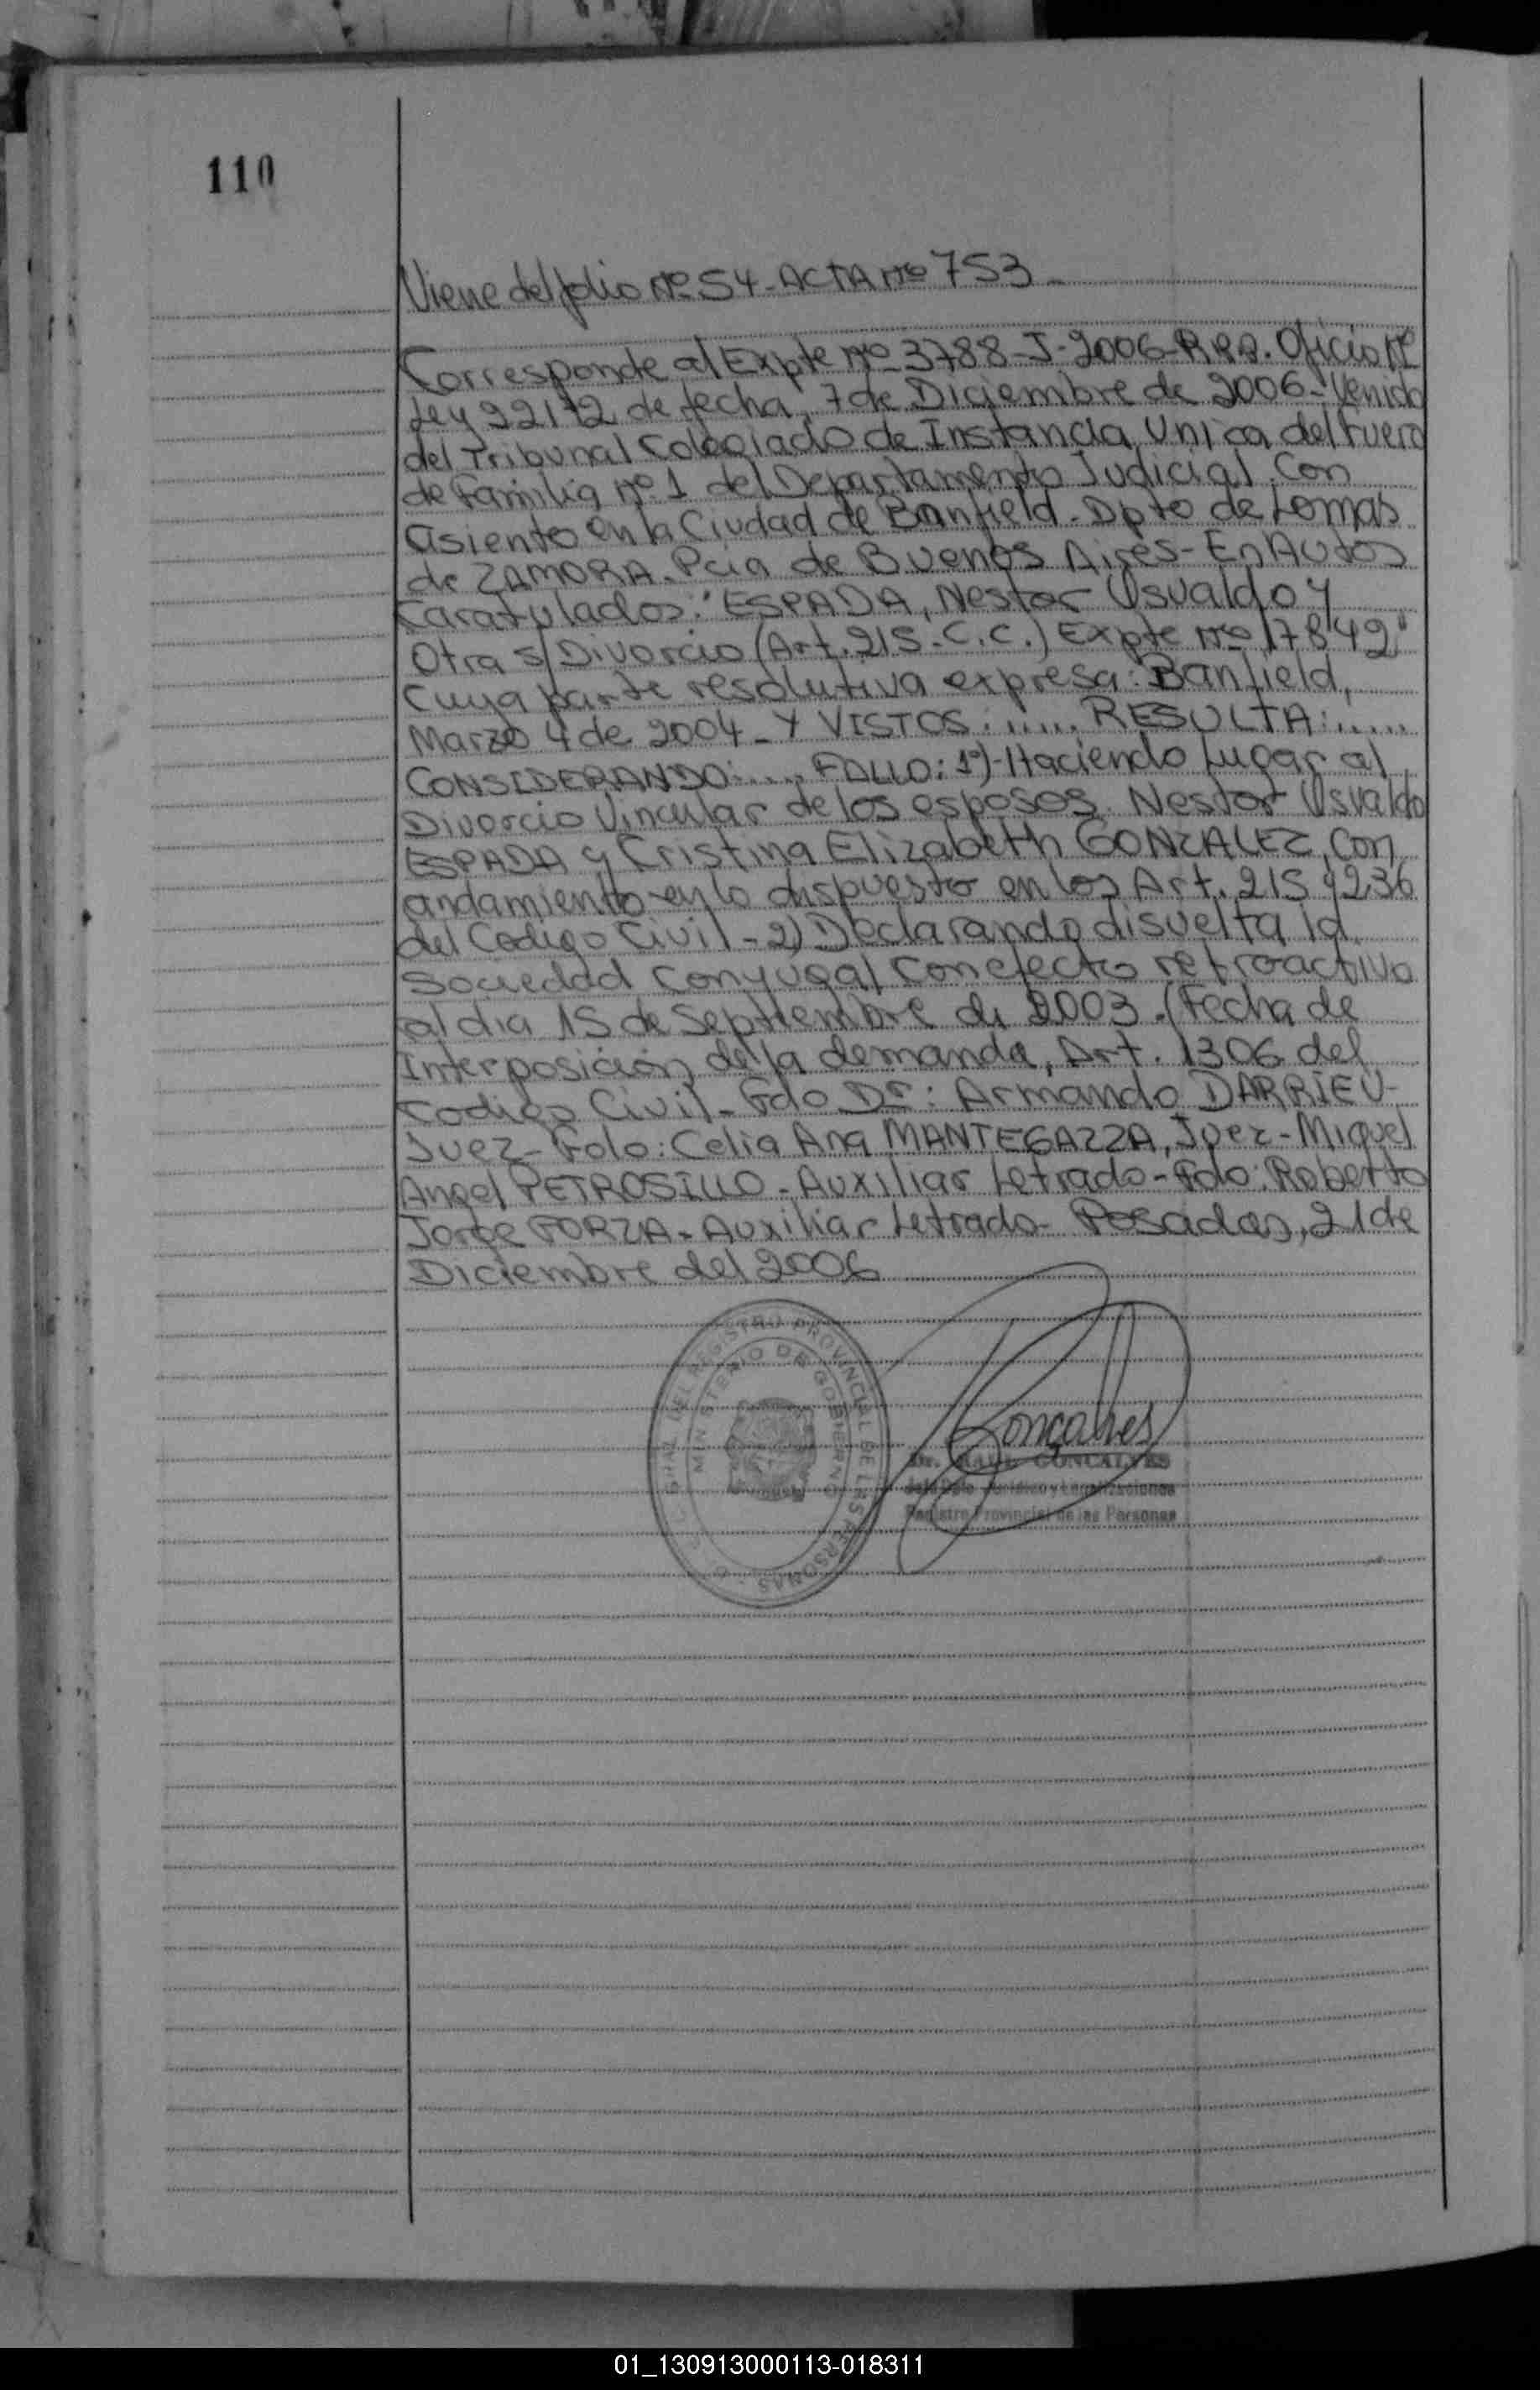 110
Viene del folio Nº 54 - ACTA Nº 753 -
Corresponde al Expte Nº 3788-J-2006-R.P.P. Oficio Nº
Ley 22172 de fecha, 7 de Diciembre de 2006 - Venido
del Tribunal Colegiado de Instancia Unica del Fuero
de Familia Nº 1 del Departamento Judicial, Con
asiento en la Ciudad de Banfield - Dpto de Lomas
de ZAMORA. Pcia de Buenos Aires - En Autos
Caratulados: "ESPADA, Nestor Osvaldo y
Otra s/ Divorcio (Art. 215 - C.C.) Expte Nº 17842"
Cuya parte resolutiva expresa: Banfield,
Marzo 4 de 2004 - Y VISTOS: ..... RESULTA: .....
CONSIDERANDO: .... FALLO: 1º) - Haciendo Lugar al
Divorcio Vincular de los esposos Nestor Osvaldo
ESPADA y Cristina Elizabeth GONZALEZ, Con
andamiento en lo dispuesto en los Art. 215 y 236
del Codigo Civil - 2) Declarando disuelta la
Sociedad Conyugal con efecto retroactivo
al dia 15 de Septiembre de 2003. (Fecha de
Interposición de la demanda, Art. 1306 del
Codigo Civil - Fdo Dr: Armando DARRIEU -
Juez - Fdo: Celia Ana MANTEGAZZA, Juez - Miguel
Angel PETROSILLO - Auxiliar Letrado - Fdo: Roberto
Jorge FORZA - Auxiliar Letrado - Posadas, 21 de
Diciembre del 2006
GRAL DEL REGISTRO PROVINCIAL DE LAS PERSONAS
MINISTERIO DE GOBIERNO
Gonçalves
Dr. RAUL GONCALVES
Jefe Dpto Jurídico y Legalizaciones
Registro Provincial de las Personas
01_130913000113-018311